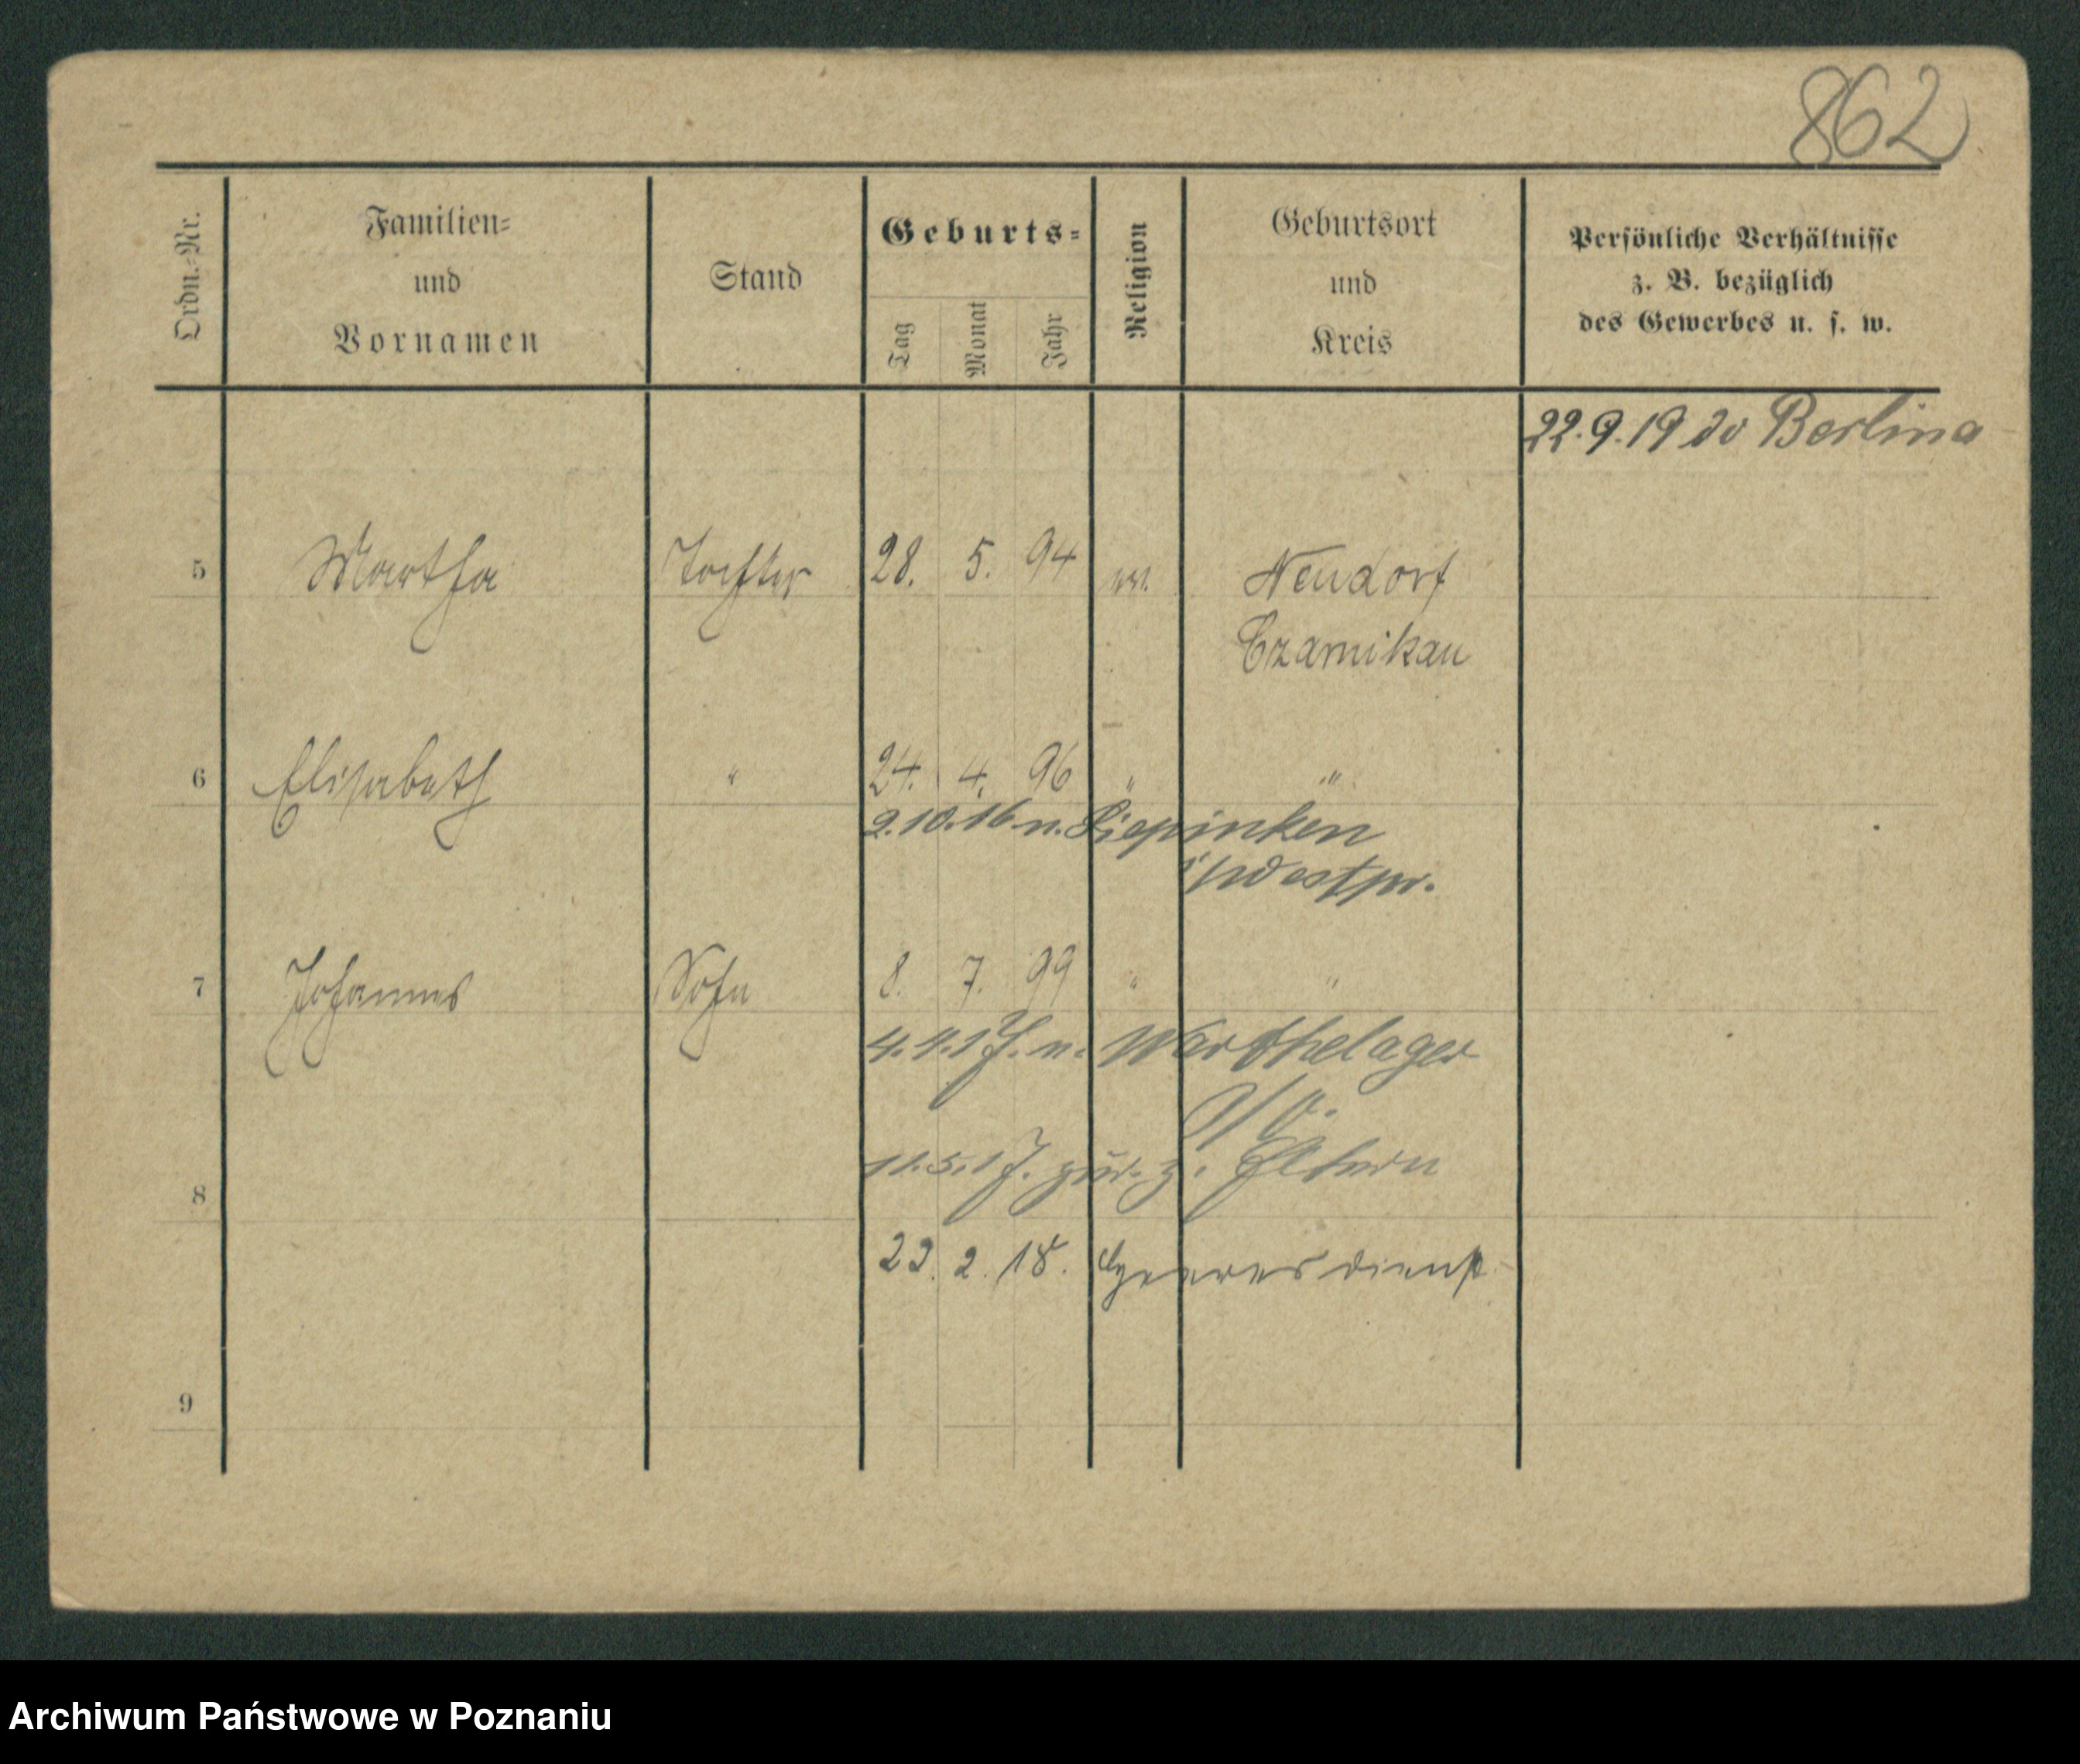 862
Ordn.-Nr.
Familien-
und
Vornamen
Stand
Geburts-
Tag
Monat
Jahr
Religion
Geburtsort
und
Kreis
Persönliche Verhältnisse
z. B. bezüglich
des Gewerbes u. s. w.
22.9.19 do Berlina
5 Martha Tochter 28. 5. 94 ev. Neudorf
Czarnikau
6 Elisabeth " 24. 4. 96 " "
2.10.16 n.
Westpr.
7 Johannes Sohn 8. 7. 99 " "
4.4.17. n. Warthelager
11.5.17. zur. z. Eltern
8
23. 2. 18. Heeresdienst
9
Archiwum Państwowe w Poznaniu